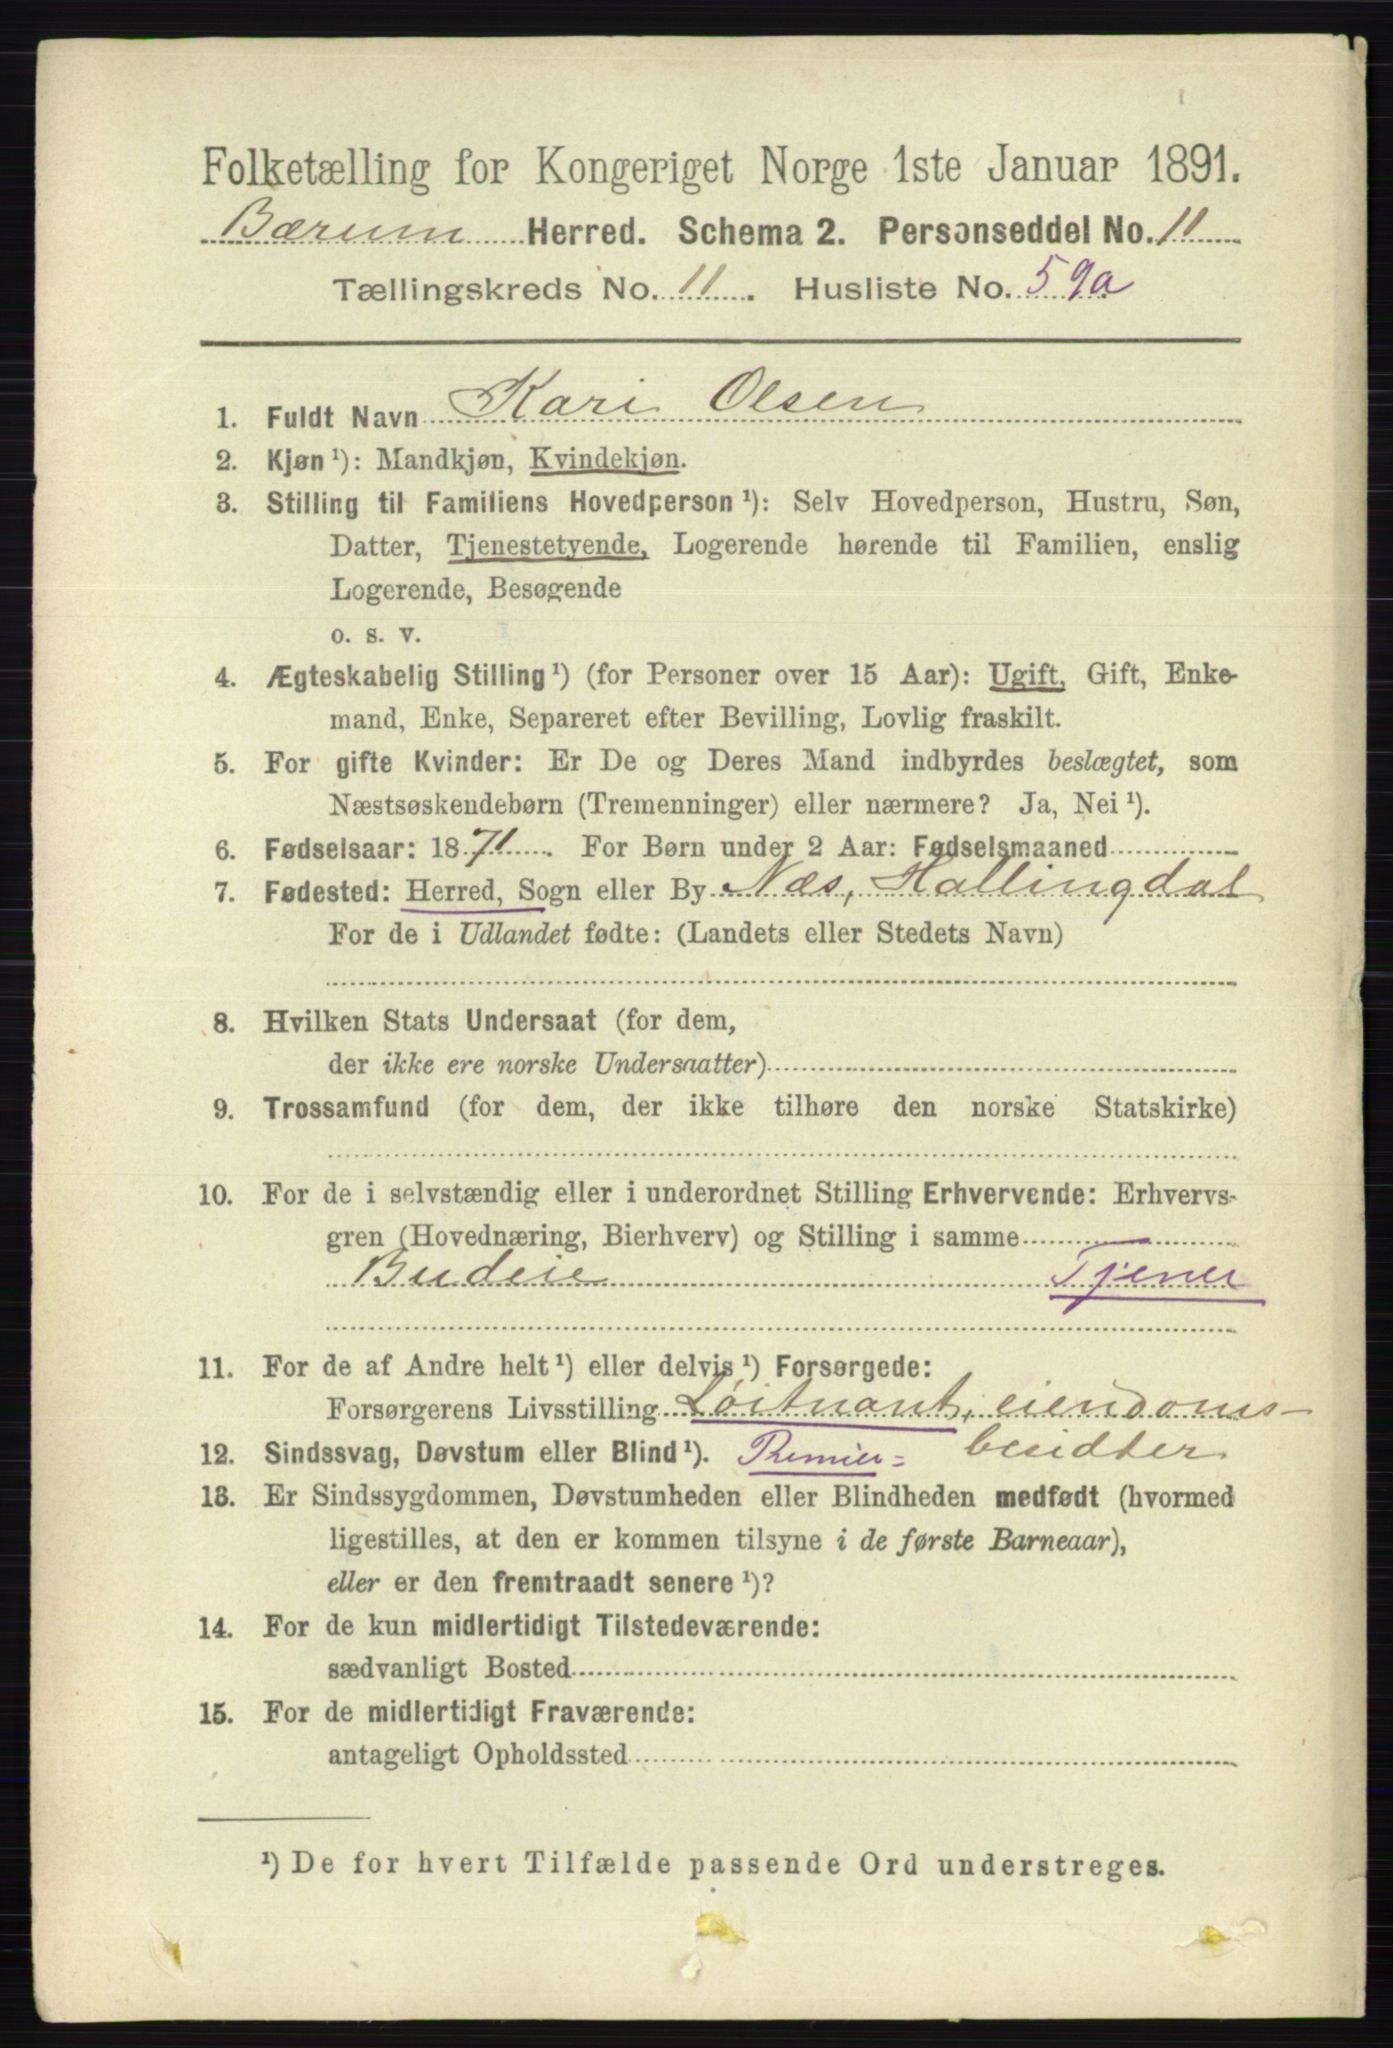 Folketælling for Kongeriget Norge 1ste Januar 1891.
Bærum Herred. Schema 2. Personseddel No. 11
Tællingskreds No. 11. Husliste No. 59a
1. Fuldt Navn Kari Olsen
2. Kjøn ¹): Mandkjøn, Kvindekjøn.
3. Stilling til Familiens Hovedperson ¹): Selv Hovedperson, Hustru, Søn,
Datter, Tjenestetyende, Logerende hørende til Familien, enslig
Logerende, Besøgende
o. s. v.
4. Ægteskabelig Stilling ¹) (for Personer over 15 Aar): Ugift, Gift, Enke-
mand, Enke, Separeret efter Bevilling, Lovlig fraskilt.
5. For gifte Kvinder: Er De og Deres Mand indbyrdes beslægtet, som
Næstsøskendebørn (Tremenninger) eller nærmere? Ja, Nei ¹).
6. Fødselsaar: 1871. For Børn under 2 Aar: Fødselsmaaned
7. Fødested: Herred, Sogn eller By Næs, Hallingdal
For de i Udlandet fødte: (Landets eller Stedets Navn)
8. Hvilken Stats Undersaat (for dem,
der ikke ere norske Undersaatter)
9. Trossamfund (for dem, der ikke tilhøre den norske Statskirke)
10. For de i selvstændig eller i underordnet Stilling Erhvervende: Erhvervs-
gren (Hovednæring, Bierhverv) og Stilling i samme
Budeie Tjener
11. For de af Andre helt ¹) eller delvis ¹) Forsørgede:
Forsørgerens Livsstilling Løitnant, eiendoms-
12. Sindssvag, Døvstum eller Blind ¹). Premier= besidter
13. Er Sindssygdommen, Døvstumheden eller Blindheden medfødt (hvormed
ligestilles, at den er kommen tilsyne i de første Barneaar),
eller er den fremtraadt senere ¹)?
14. For de kun midlertidigt Tilstedeværende:
sædvanligt Bosted
15. For de midlertidigt Fraværende:
antageligt Opholdssted
¹) De for hvert Tilfælde passende Ord understreges.